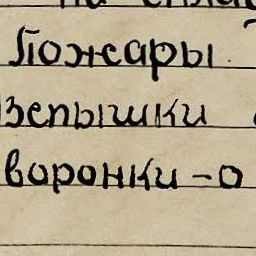 Пожары
Вспышки
воронки - о